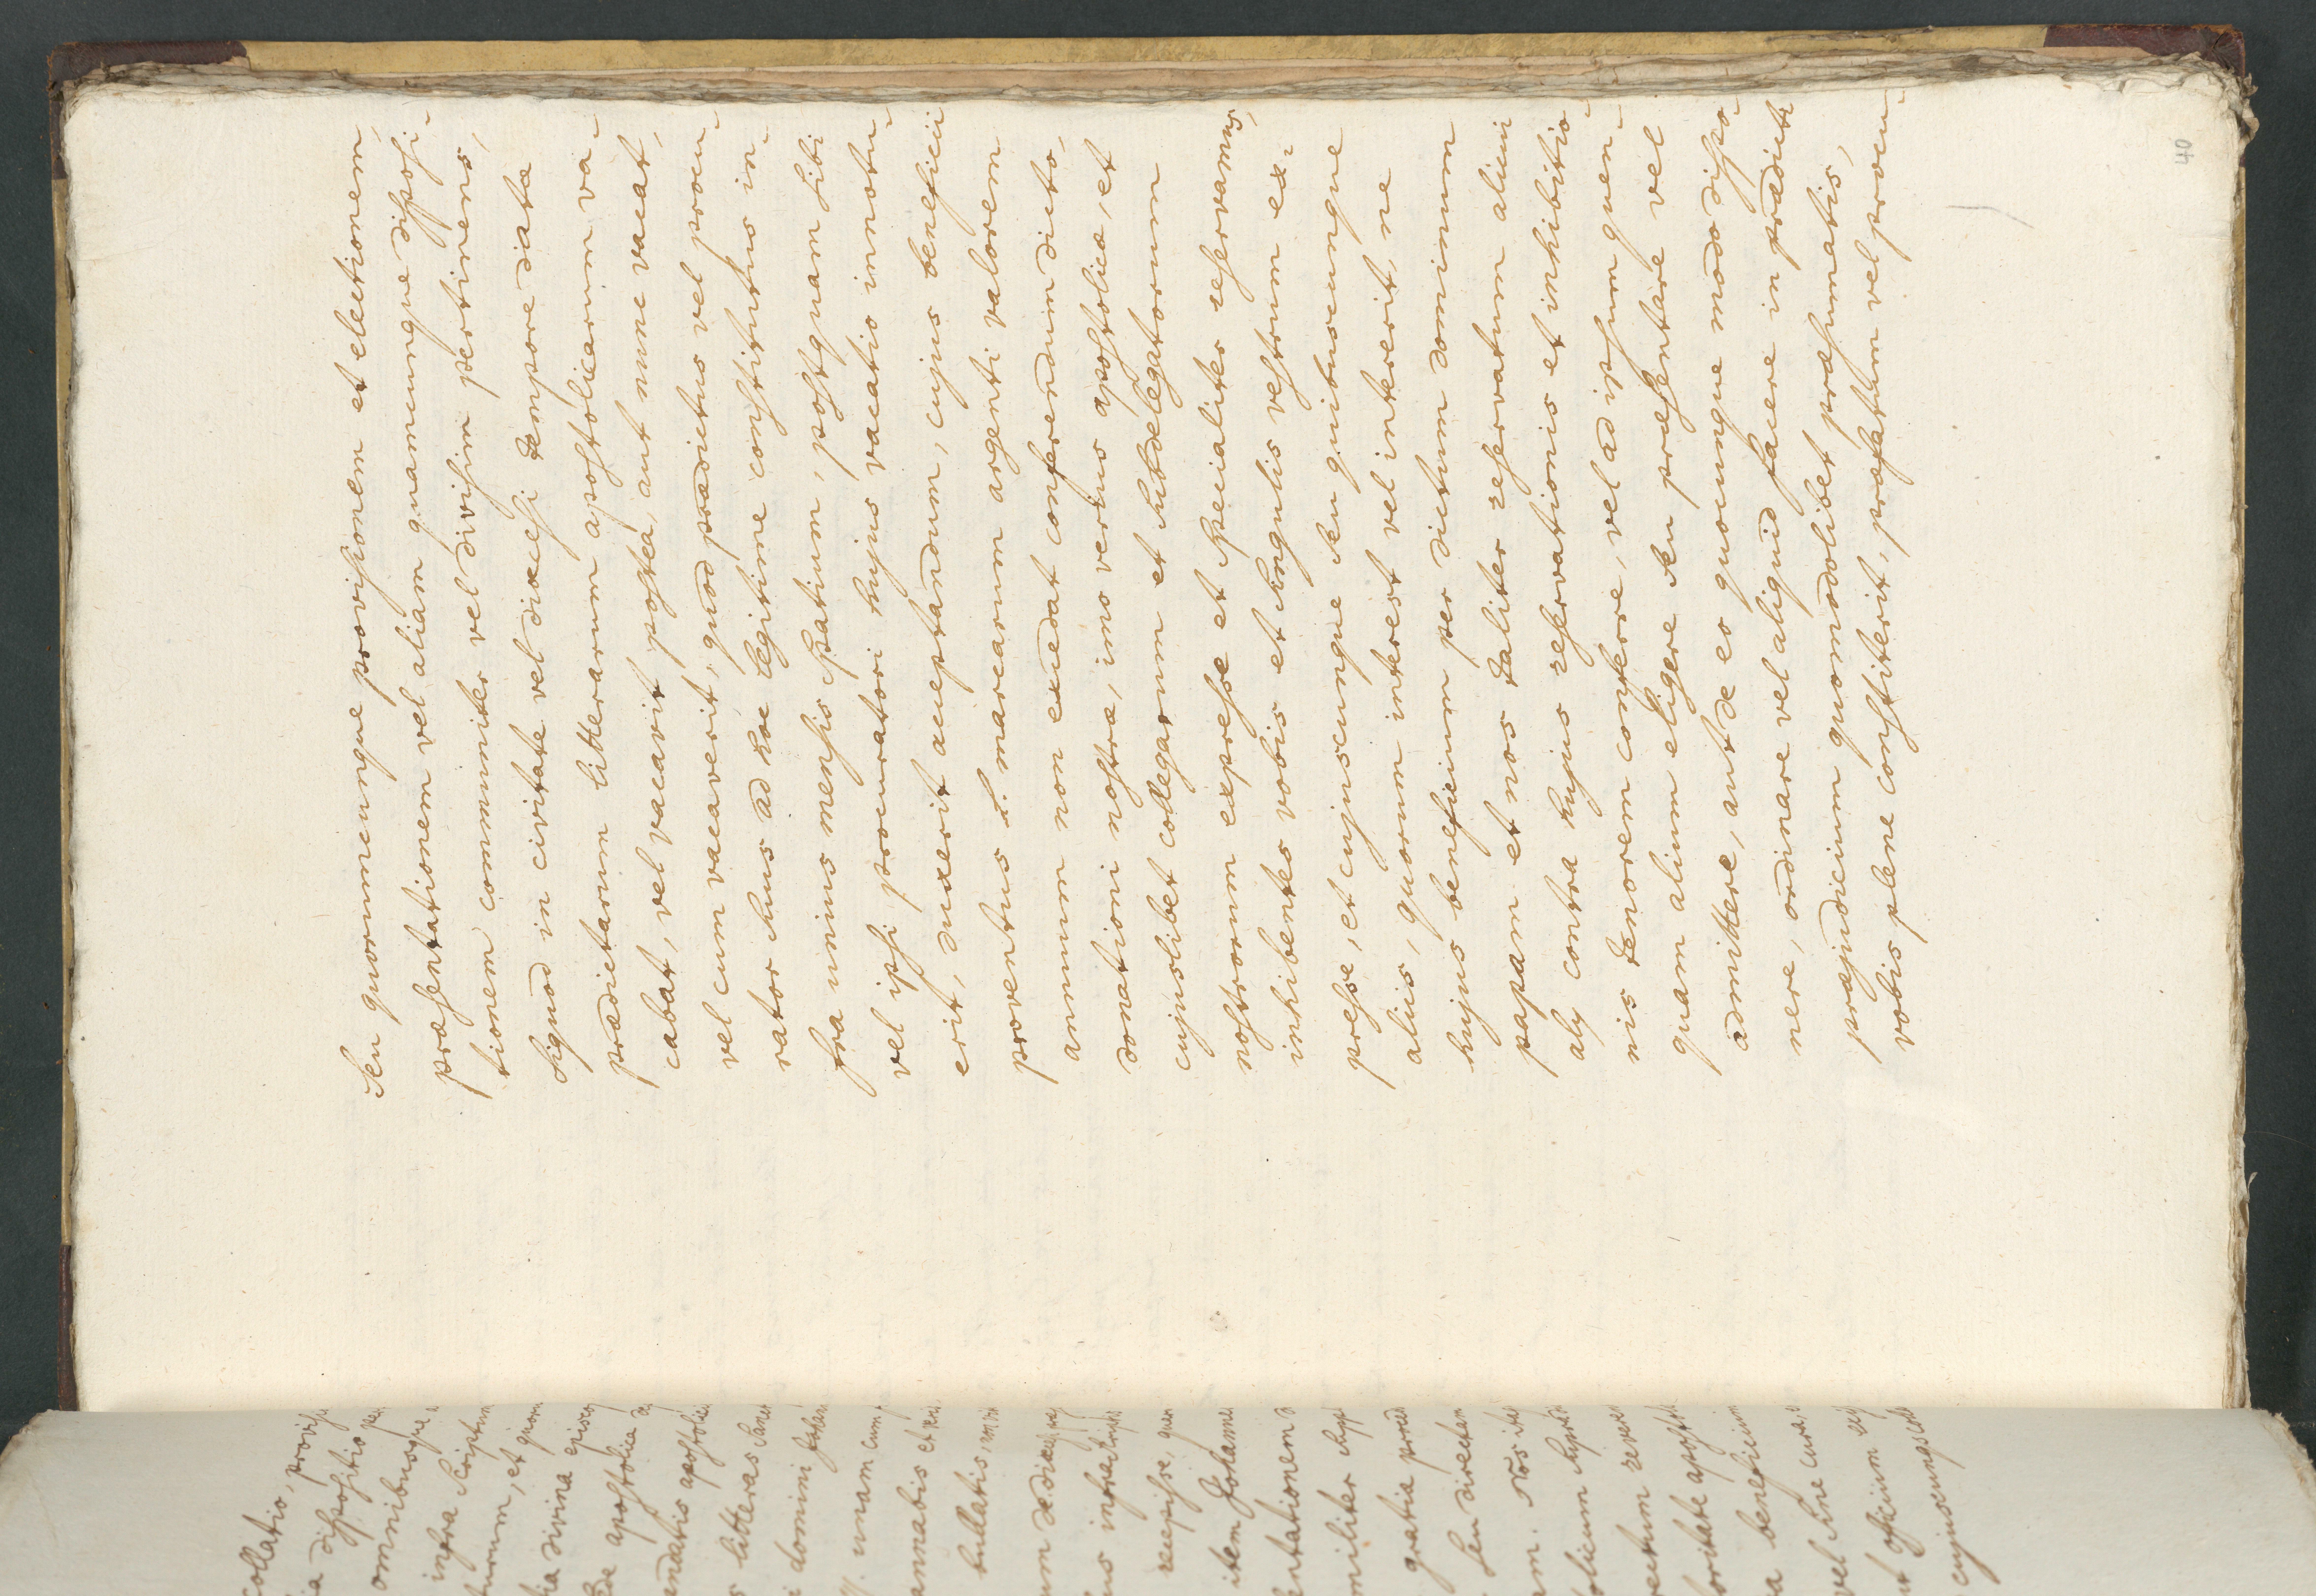 seu quorumcunque provisionem et electionem,
præsentationem vel aliam quamcumque disposi-
tionem communiter vel divisim pertinens,
siquod in civitate vel diœcesi tempore datæ
prædictarum litterarum apostolicarum va-
cabat, vel vacavit postea, aut nunc vacat,
vel cum vacaverit, quod prædictus vel procu-
rator suus ad hoc legitime constitutus in-
fra unius mensis spatium, postquam sibi
vel ipsi procuratori hujus vacatio innotu-
erit, duxerit acceptandum, cujus beneficii
proventus s. marcarum argenti valorem
annuum non excedat conferendum dicto,
donationi nostræ, imo verius apostolicæ, et
cujuslibet collegarum et subdelegatorum
nostrorum expresse et specialiter reservamus,
inhibentes vobis et singulis vestrum ex-
presse, et cujuscunque seu quibuscunque
aliis, quorum interest vel intererit, ne
hujus beneficium per dictum dominum
papam et nos taliter reservatum alicui
alij contra hujus reservationis et inhibitio-
nis tenorem conferre, vel ad ipsum quen-
quam alium eligere seu præsentare vel
admittere, aut de eo quocunque modo dispo-
nere, ordinare vel aliquid facere in prædicti
præjudicium quomodolibet præsumatis,
vobis plene constiterit, præfatum vel procu-
40
collatio,
dispositio
omnibusque
infra scriptum
et
divina
apostolica
apostoli
litteras
domini
unam cum
et
bullatis,
infra
recepisse,
item Johannes
gratiæ
seu directam
Nos
beneficium
vel sine cura
officium
cujuscunque